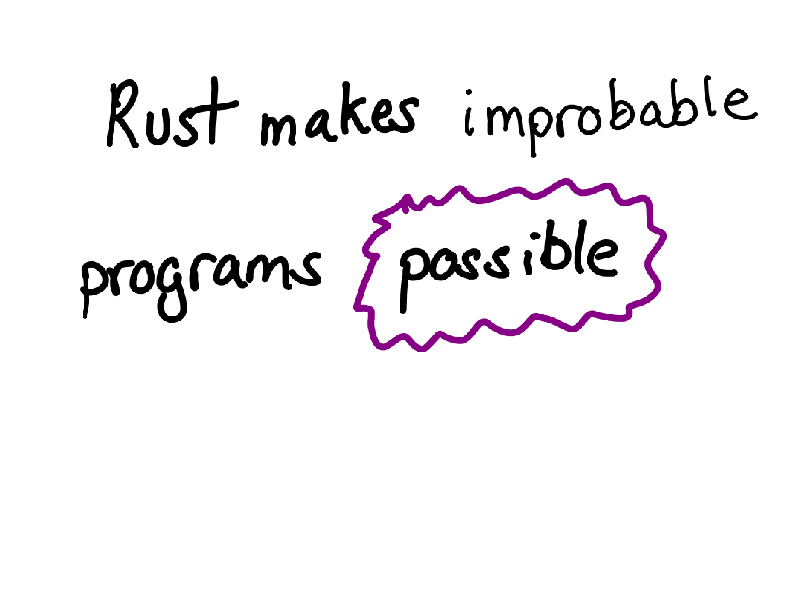 Rust makes improbable
programs possible